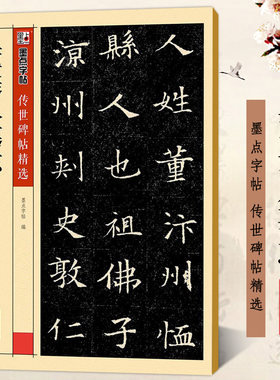 人姓董汴州恤
縣人也祖佛子
涼州刺史敦仁
墨点字帖
传世碑帖精选
墨点字帖 编
墨点字帖 传世碑帖精选